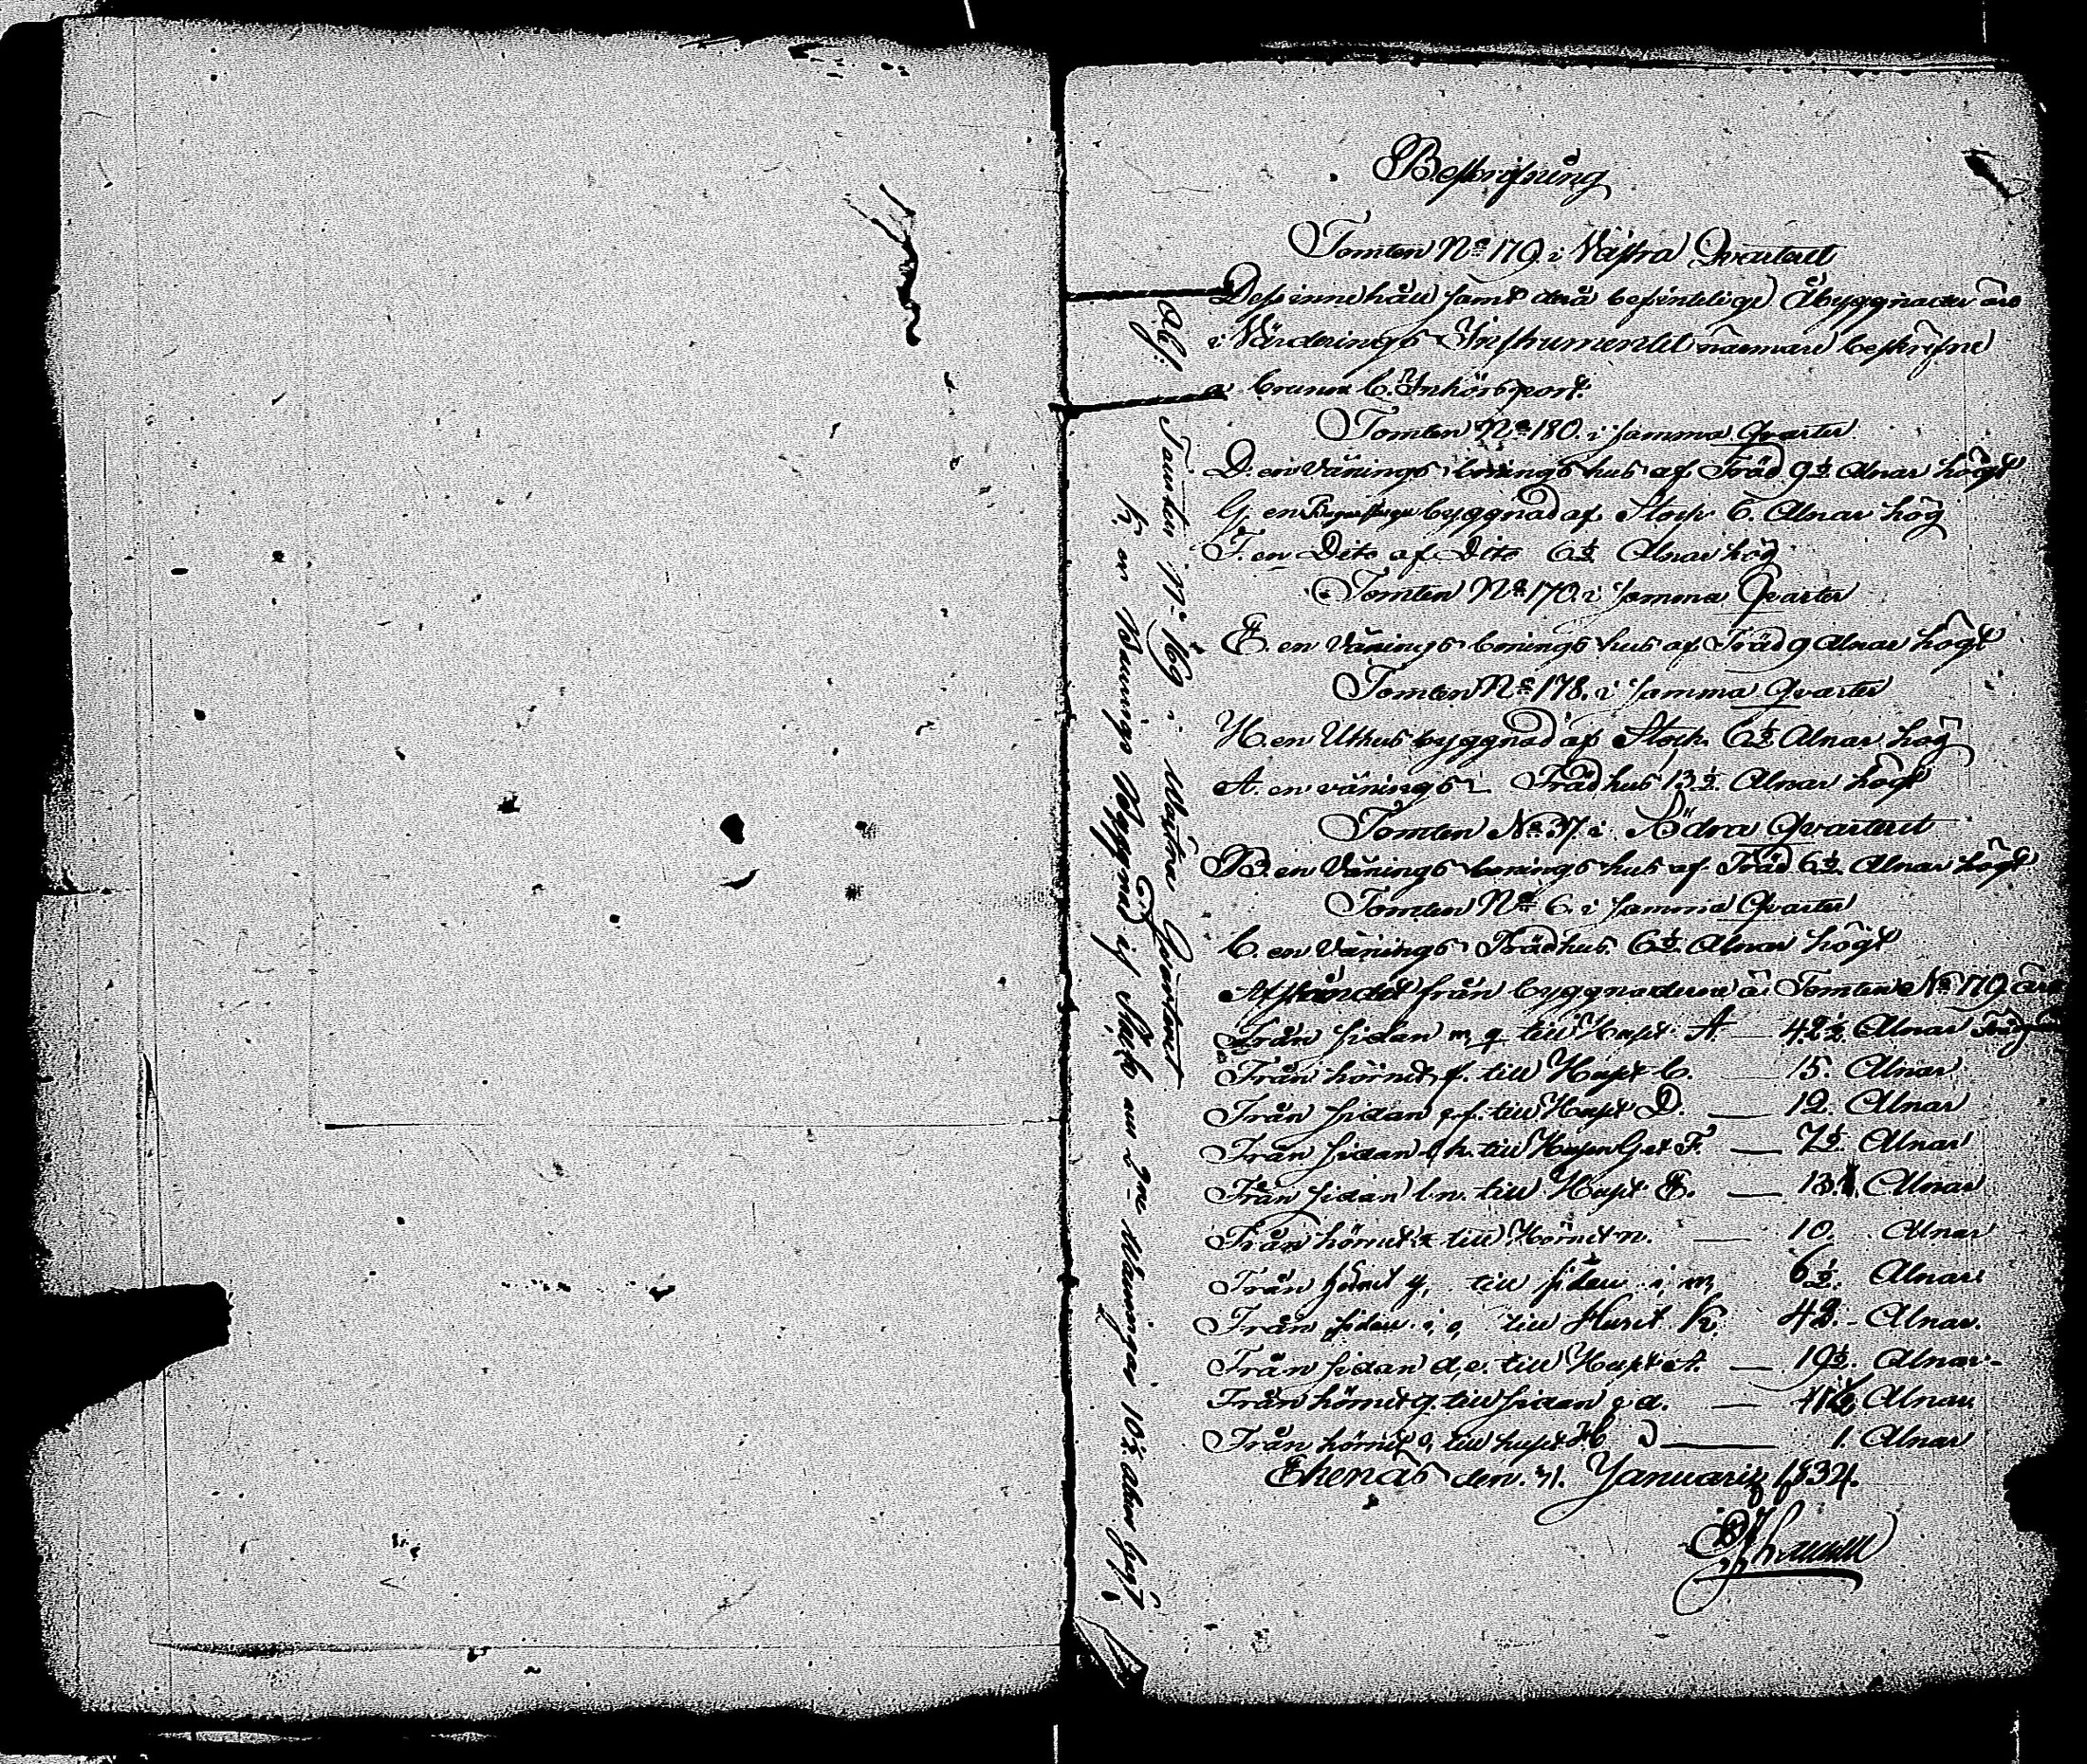 Beskrifning
Tomten No 179 i Västra Qvarteret
Dess innehåll samt derå befintelige Åbyggnader äro
i Värderings Instrumentet närmare beskrifne
a. brunn b. Inkörsport.
Tomten No 180. i samma Qvarter
D. en Vånings bonings hus af Träd 9½ Alnar högt
G. en byggnad af Stock 6. Alnar hög
F. en Dito af Dito 6½ Alnar hög
Tomten No 170. i samma Qvarter
E. en Vånings bonings hus af Träd 9 Alnar högt
Tomten No 178. i samma Qvarter
H. en Uthus byggnad af Stock 6½ Alnar hög
A. en vånings Trädhus 13½ Alnar högt
Tomten No 37. i Södra Qvarteret
B. en Vånings bonings hus af Träd 6½ Alnar högt
Tomten No 6. i samma Qvarter
C. en Vånings Trädhus. 6½ Alnar högt
Afståndet från byggnaderna å Tomten No 179 äro
Från sidan m, q till Huset A. — 42½ Alnar
Från hörnet f. till Huset C. — 15. Alnar
Från sidan e.f. till Huset D. — 12. Alnar
Från sidan till Husen G et F. — 7½ Alnar
Från sidan l n. till Huset E. — 13. Alnar
Från hörnet till Hörnet n. — 10. Alnar
Från hörnet y, till sidan i, m, 6½. Alnar
Från sidan i, o, till Huset K. 42. - Alnar.
Från sidan d,e. till Huset A. — 19½. Alnar
Från hörnet g. till sidan c d. — Alnar
Från hörnet till huset H — 1. Alnar
Ekenäs den. 31. Januarii 1834.
Tomten No 169 i Westra Qvarteret
K. en Wånings Byggnad af Stock om 2ne Wåningar 10½ alnar högt